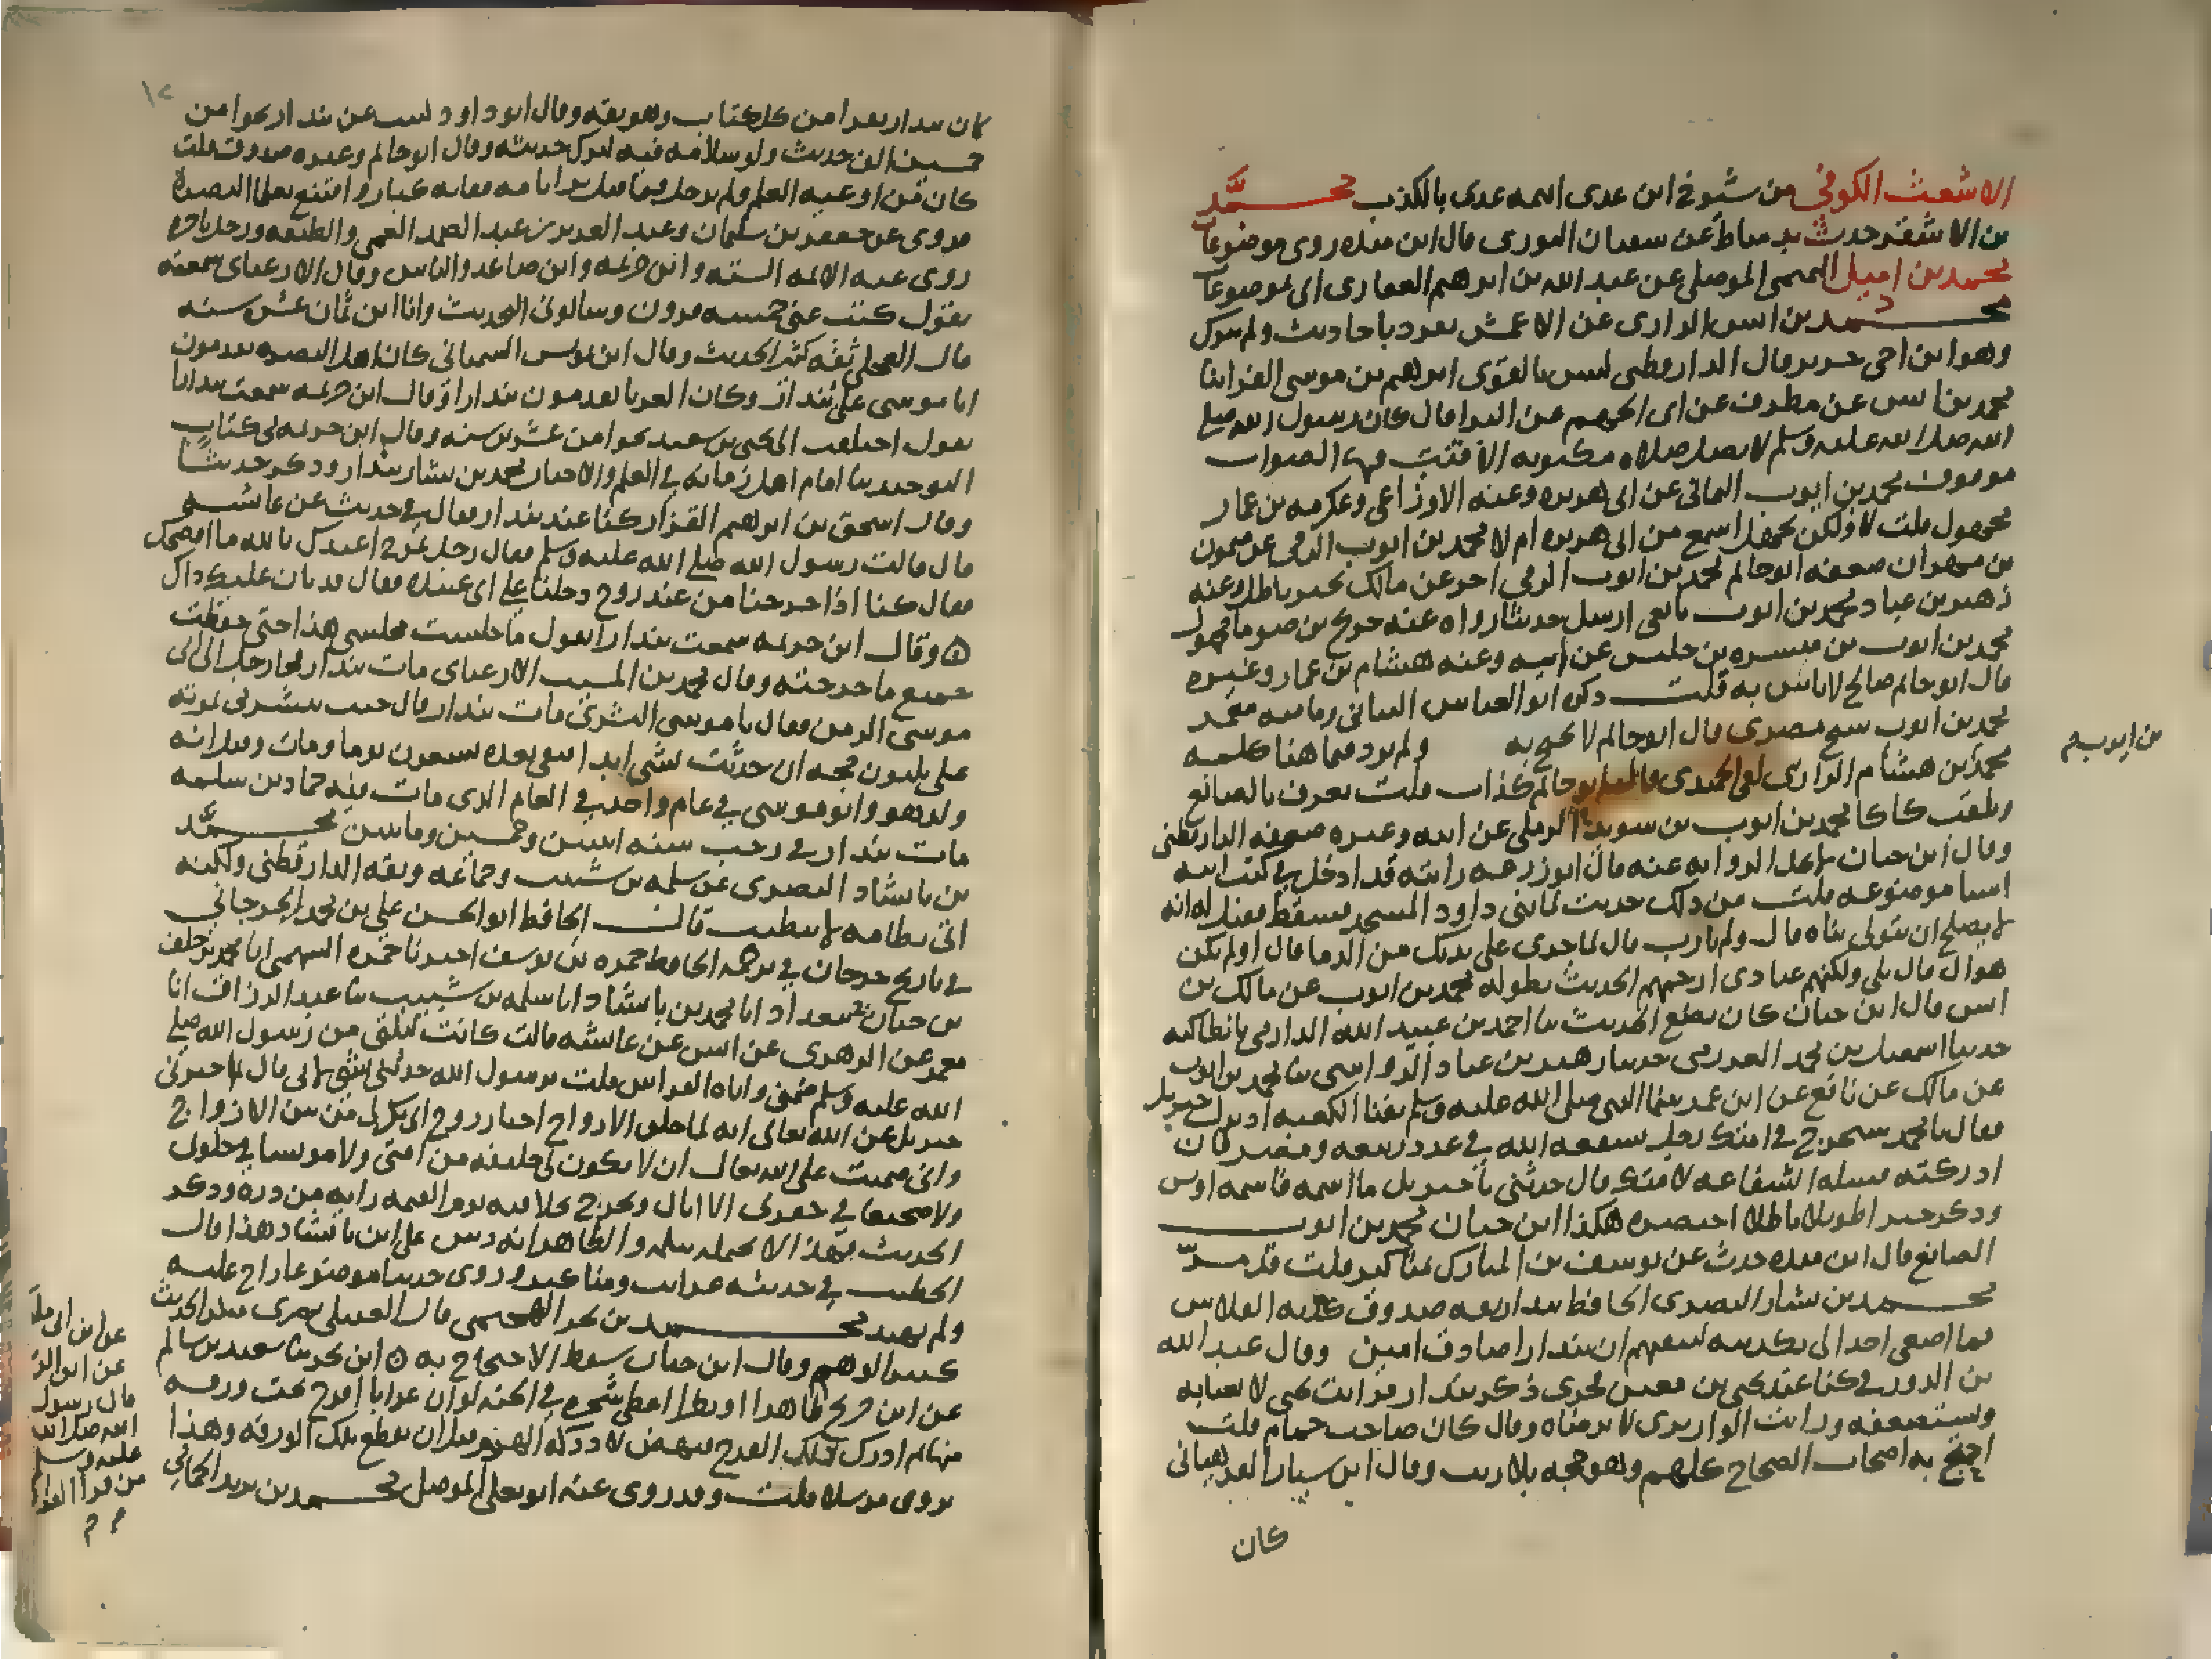 الاشعث الكوفي من شيوخ ابن عدى اتهمه عدى بالكذب محمد
بن الاشقر حدث بدمياط عن سفيان الثورى قال ابن منده روى موضوعات
محمد بن اميل التميمى الموصلى عن عبد الله بن ابرهيم الغفارى اتى بموضوعات
محمد بن انس الرازى عن الاعمش تفرد باحاديث ولم يترك
وهو ابن اخى جرير قال الدارقطنى ليس بالقوى ابرهيم بن موسى الفرا ثنا
محمد بن انس عن مطرف عن ابى الجهم عن البرا قال كان رسول الله صلى
الله صلى الله عليه وسلم لا يصلى صلاة مكتوبه الا قنت فيها الصواب
موقوف محمد بن ايوب اليمانى عن ابى هريره وعنه الاوزاعى وعكرمه بن عمار
مجهول قلت لا ولكن اسمع من ابى هريره ام لا محمد بن ايوب الرقى عن ميمون
بن مهران ضعفه ابو حاتم محمد بن ايوب الرقى اخر عن مالك بخبر باطل وعنه
زهير بن عباد محمد بن ايوب تابعى ارسل حديثا رواه عنه مجهول
محمد بن ايوب بن ميسره بن حلبس عن ابيه وعنه هشام بن عمار وغيره
قال ابو حاتم صالح لا باس به قلت ذكره ابو العباس النباتى وما فيه مغمز
محمد بن ايوب شيخ مصرى قال ابو حاتم لا يحتج به ولم يزد فيما هنا كلمه
محمد بن هشام الرازى لقى الحميدى قال ابو حاتم كذاب قلت يعرف بالصائغ
ويلقب كاكا محمد بن ايوب بن سويد الرملى عن ابيه وغيره ضعفه الدارقطنى
وقال ابن حبان لا تحل الروايه عنه قال ابو زرعه رايته قد ادخل في كتب ابيه
اشيا موضوعه قلت من ذلك حديث لما بنى داود المسجد فسقط فقيل له انه
لا يصلح ان تتولى بناه قال ولم يا رب قال لما جرى على يديك من الدما قال اولم يكن
هواك قال بلى ولكنهم عبادى ارحمهم الحديث بطوله محمد بن ايوب عن مالك بن
انس قال ابن حبان كان يضع الحديث ثنا احمد بن عبيد الله الدارمى بانطاكيه
حدثنا اسمعيل بن محمد العذرمى حدثنا زهير بن عباد الرواسى ثنا محمد بن ايوب
عن مالك عن نافع عن ابن عمر بينما النبى صلى الله عليه وسلم بفنا الكعبه اذ نزل جبريل
فقال يا محمد سيخرج في امتك رجل يشفعه الله في عدد ربيعه ومضر فان
ادركته فسله الشفاعه لامتك قال حدثنى يا جبريل ما اسمه قال اسمه اويس
وذكر خبرا طويلا باطلا اختصره هكذا ابن حبان محمد بن ايوب
الصائغ قال ابن منده حدث عن يوسف بن المبارك بمناكير قلت قد مرّ
محمد بن بشار البصرى الحافظ بندار ثقه صدوق كذبه الفلاس
فما اصغى احد الى تكذيبه لتيقنهم ان بندارا صادق امين وقال عبد الله
بن الدورقي كنا عند يحيى بن معين فجرى ذكر بندار فرايت يحيى لا يعبا به
ويستضعفه ورايت القواريرى لا يرضاه وقال كان صاحب حمام قلت
احتج به اصحاب الصحاح كلهم وهو حجه بلا ريب وقال ابن سيار الفرهيانى
كان
بن ايوب
كان بندار يقرا من كل كتاب وهو ثقه وقال ابو داود كتبت عن بندار نحوا من
خمسين الف حديث ولولا سلامه فيه لترك حديثه وقال ابو حاتم وغيره صدوق قلت
كان من اوعيه العلم ولم يرحل فيما قيل برا بامه ففاته كبار واقتنع بعلما البصره
فروى عن جعفر بن سليمان وعبد العزيز بن عبد الصمد العمى والطبقه ورحل باخره
روى عنه الائمه السته وابن خزيمه وابن صاعد والناس وقال الارغيانى سمعته
يقول كتب عنى خمسه قرون وسالونى الحديث وانا ابن ثمان عشر سنه
قال العجلي ثقه كثير الحديث وقال ابن يونس السمنانى كان اهل البصره يقدمون
ابا موسى على بندار وكان الغربا يقدمون بندارا وقال ابن خزيمه سمعت بندارا
يقول اختلفت الى يحيى بن سعيد نحوا من عشرين سنه وقال ابن خزيمه في كتاب
التوحيد ثنا امام اهل زمانه في العلم والاخبار محمد بن بشار بندار وذكر حديثا
وقال اسحق بن ابرهيم القزاز كنا عند بندار فقال في حديث عن عائشه
قال قالت رسول الله صلى الله عليه وسلم فقال رجل يمزح اعيذك بالله ما افصحك
فقال كنا اذا خرجنا من عند روح دخلنا على ابى عبيده فقال قد بان عليك ذاك
ه وقال ابن خزيمه سمعت بندارا يقول ما جلست مجلسى هذا حتى حفظت
جميع ما خرجته وقال محمد بن المسيب الارغيانى مات بندار فجا رجل الى ابى
موسى الزمن فقال يا موسى البشرى مات بندار قال جيت تبشرنى بموته
على ثلثون حجه ان حدثت بشى ابدا فبقى بعده تسعون يوما ومات وقيل انه
ولد هو وابو موسى في عام واحد في العام الذى مات فيه حماد بن سلمه
مات بندار في رجب سنه اثنين وخمسين ومائتين محمد
بن باشاد البصرى عن سلمه بن شبيب وجماعه وثقه الدارقطنى ولكنه
اتى بطامه لا تطيب قال الحافظ ابو الحسن على بن محمد الجرجاني
في تاريخ جرجان في ترجمه الحافظ حمزه بن يوسف اخبرنا حمزه السهمى انا محمد بن خلف
بن حيان ببغداد انا محمد بن باشاد انا سلمه بن شبيب ثنا عبد الرزاق انا
معمر عن الزهرى عن انس عن عائشه قالت كانت ليلتى من رسول الله صلى
الله عليه وسلم فضمنى واياه الفراش قلت يرسول الله حدثنى بشى لابى قال اخبرنى
جبريل عن الله تعالى انه لما خلق الارواح اختار روح ابى بكر لى من بين الارواح
وانى ضمنت على الله تعالى ان لا يكون لى خليفه من امتى ولا مونسا في خلوتى
ولا ضجيعا في حفرتى الا اباك وتخرج خلافته يوم القيمه رايه من دره وذكر
الحديث فهذا لا يحمله سلمه والظاهر انه دس على ابن باشاد هذا قال
الخطيب في حديثه غرائب ومناكير وروى حديثا موضوعا راج عليه
ولم يهتد محمد بن بحر الهجيمى قال العقيلى بصرى منكر الحديث
كثير الوهم وقال ابن حبان سقط الاحتجاج به ه ابن بحر ثنا سعيد بن سالم
عن ابن جريج ظاهرا او نظرا اعطى شجره في الجنه لو ان غرابا افرخ تحت ورقه
منها ثم ادرك ذلك الفرخ فنهض لادركه الهرم قبل ان يقطع تلك الورقه وهذا
يروى مرسلا قلت وقد روى عنه ابو يعلى الموصلى محمد بن بدر الحمامى
عن ابن ابى مليكه
عن ابن الز
قال رسول
الله صلى الله
عليه وسلم
من قرا القران